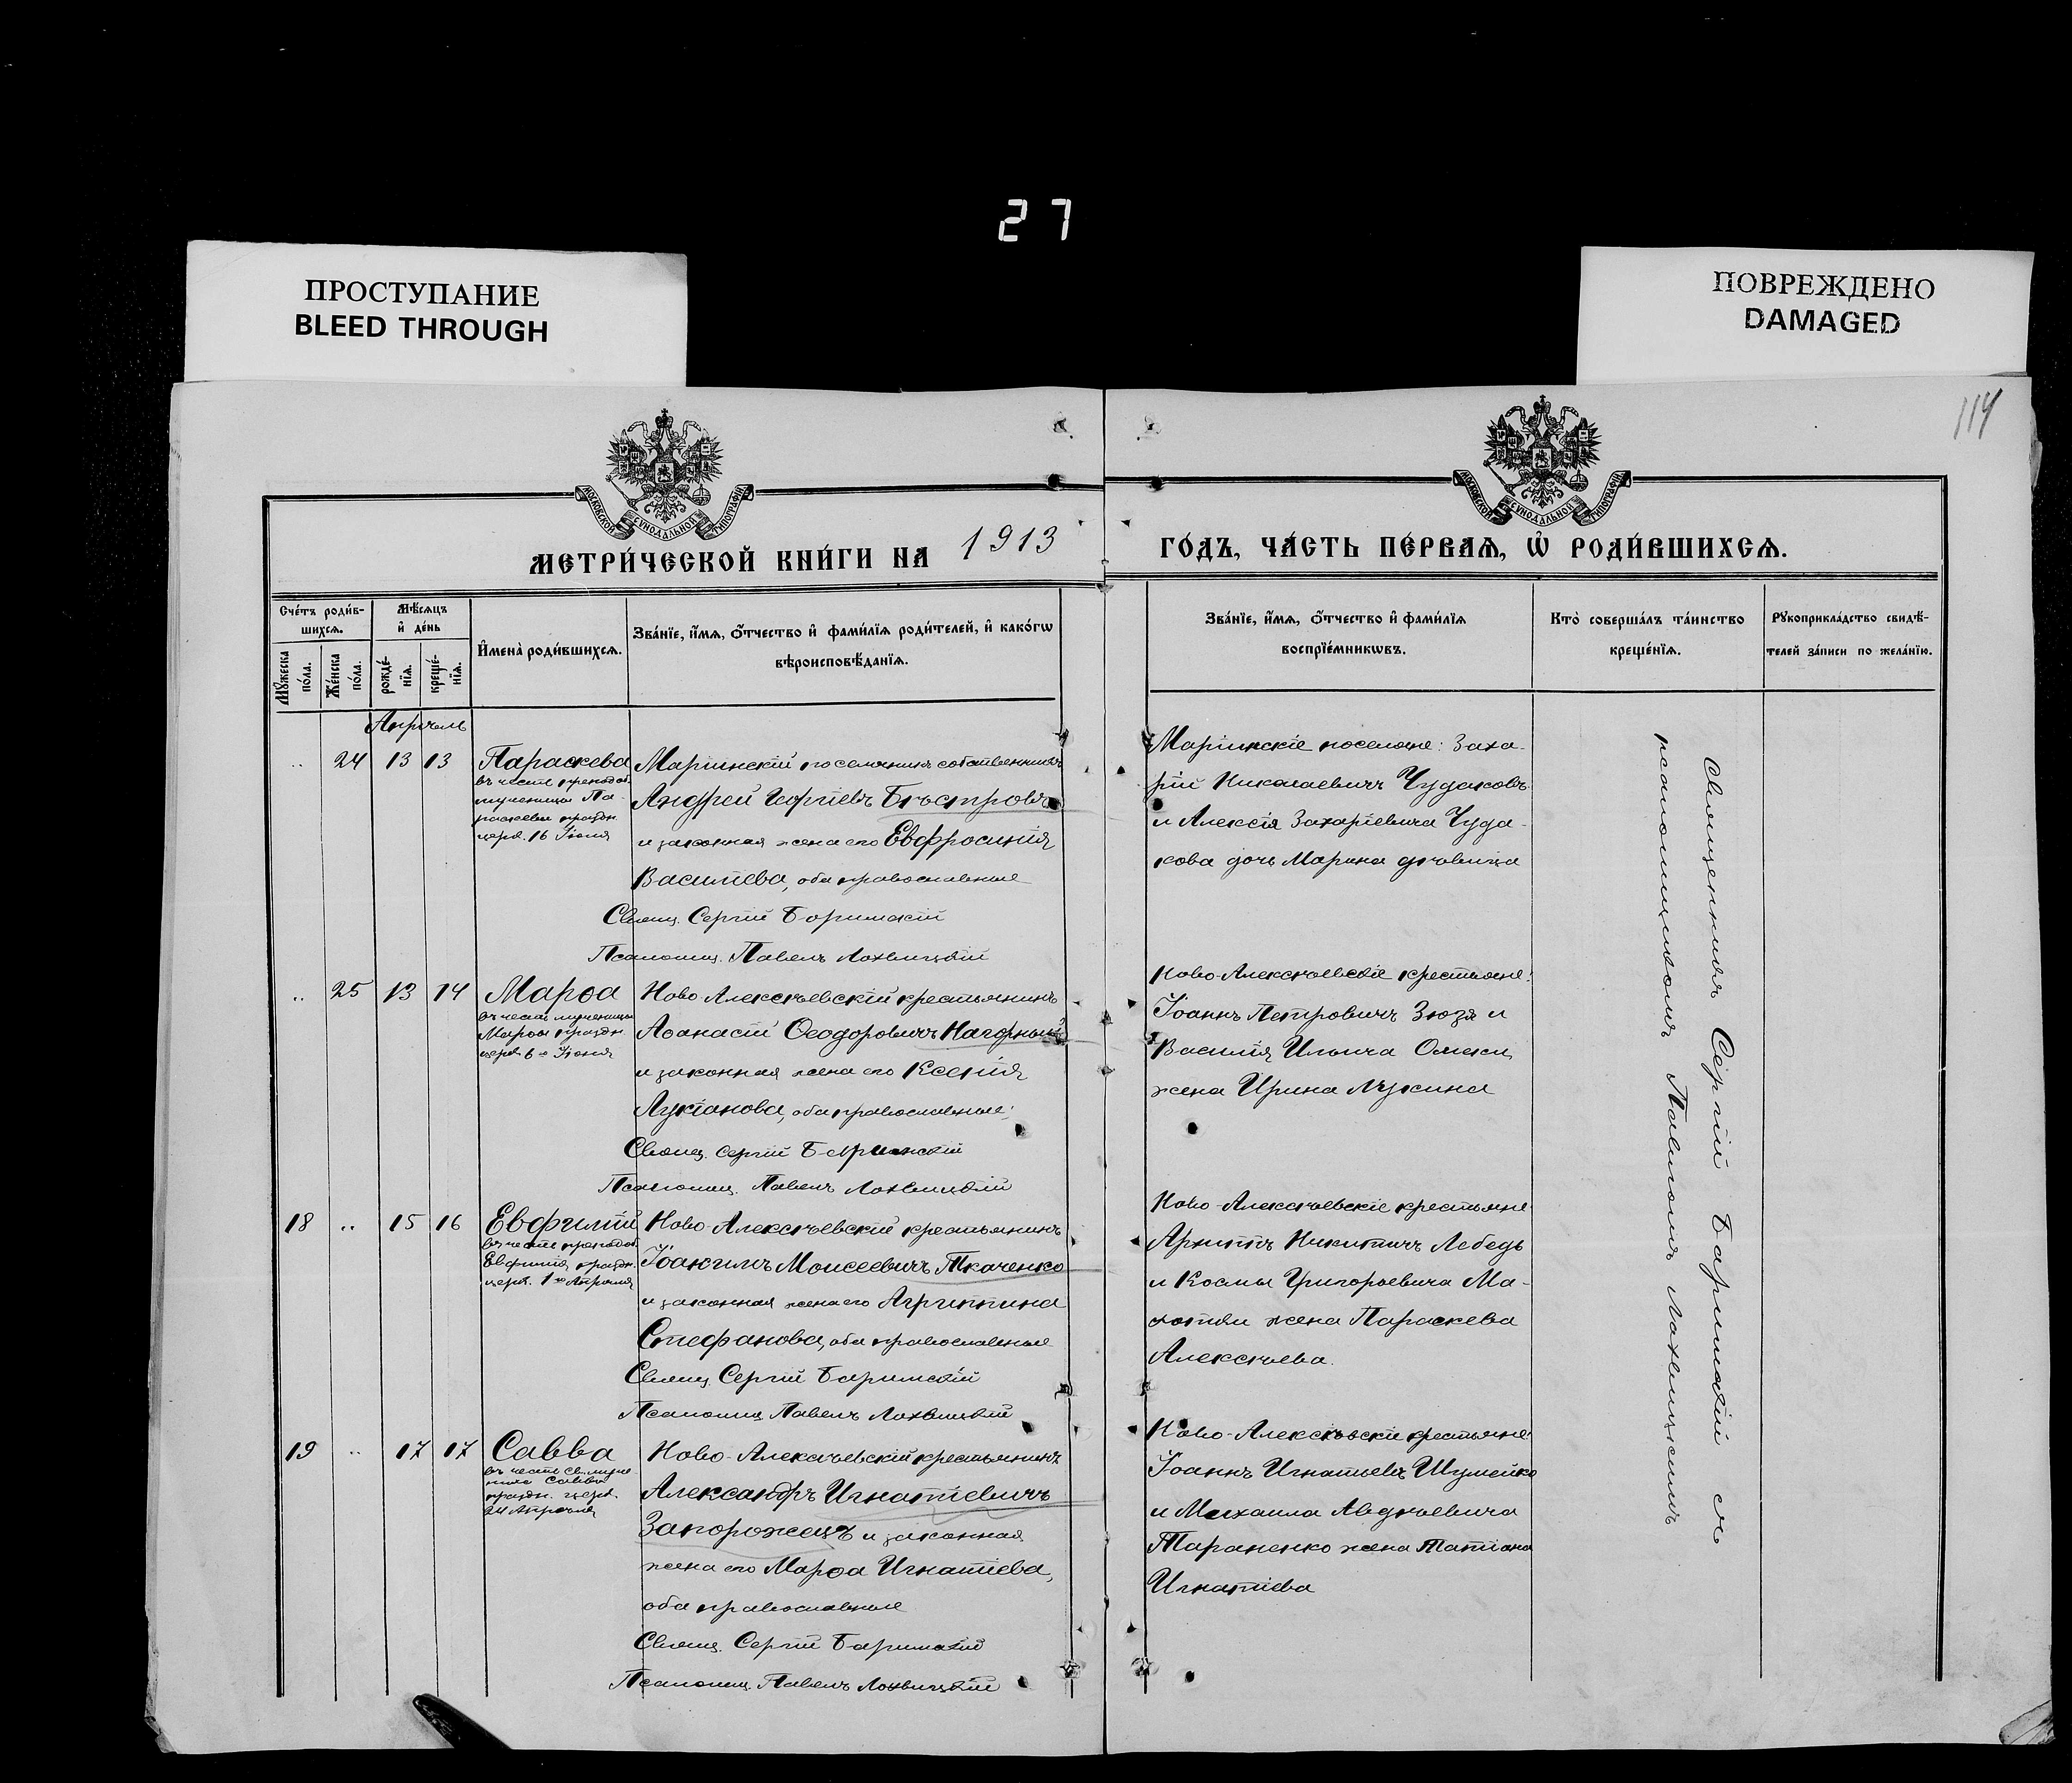 27
ПРОСТУПАНИЕ
BLEED THROUGH
ПОВРЕЖДЕНО
DAMAGED
114
МОСКОВСКОЙ СѴНОДАЛЬНОЙ ТИПОГРАФІИ
МОСКОВСКОЙ СѴНОДАЛЬНОЙ ТИПОГРАФІИ
МЕТРИ́ЧЕСКОЙ КНИ́ГИ НА 1913
ГО́ДЪ, ЧА́СТЬ ПЕ́РВАѦ, Ѡ҆ РОДИ́ВШИХСѦ.
Сче́тъ роди́в-
шихсѧ.
Мꙋ́жеска
по́ла.
Же́нска
по́ла.
Мѣ́сѧцъ
и҆ де́нь
рожде́-
нїѧ.
креще́-
нїѧ.
И҆мена̀ роди́вшихсѧ.
Зва́нїе, и҆́мѧ, ѻ҆́тчество и҆ фами́лїѧ роди́телей, и҆ како́гѡ
вѣроисповѣ́данїѧ.
Зва́нїе, и҆́мѧ, ѻ҆́тчество и҆ фами́лїѧ
воспрїе́мникѡвъ.
Кто̀ соверша́лъ та́инство
креще́нїѧ.
Рꙋкоприкла́дство свидѣ́-
телей за́писи по жела́нїю.
Апрѣль
.. 24 13 13 Параскева
въ честь преподоб.
мученицы Па-
раскевы праздн.
церв. 16 Іюня
Маріинскій поселянинъ собственникъ
Андрей Георгіевъ Быстровъ
и законная жена его Евфросинія
Василіева, оба православные
Свящ. Сергій Баримскій
Псаломщ. Павелъ Лохвицкій
Маріинскіе поселяне: Заха-
рій Николаевичъ Чудаковъ
и Алексія Захаріевича Чуда-
кова дочь Марина дѣвица
.. 25 13 14 Марѳа
въ честь мученицы
Марѳы праздн.
церв. 6го Іюня
Ново-Алексѣевскій крестьянинъ
Аѳанасій Ѳеодоровичъ Нагорный
и законная жена его Ксенія
Лукіанова, оба православные;
Свящ. Сергій Баримскій
Псаломщ. Павелъ Лохвицкій
Ново-Алексѣевскіе крестьяне:
Іоаннъ Петровичъ Зюзя и
Василія Ильича
жена Ирина Лукина
18 .. 15 16 Евфимій
въ честь преподоб.
Евфимія праздн.
церв. 1го Апрѣля
Ново-Алексѣевскій крестьянинъ
Іоакимъ Моисеевичъ Ткаченко
и законная жена его Агриппина
Стефанова, оба православные
Свящ. Сергій Баримскій
Псаломщ. Павелъ Лохвицкій
Ново-Алексѣевскіе крестьяне:
Архиппъ Никитичъ Лебедь
и Космы Григорьевича Ма-
хотки жена Параскева
Алексѣева.
19 .. 17 17 Савва
въ честь св. муче-
ника Саввы
праздн. церв.
24 Апрѣля
Ново-Алексѣевскій крестьянинъ
Александръ Игнатіевичъ
Запорожецъ и законная
жена его Марѳа Игнатіева,
оба православные
Свящ. Сергій Баримскій
Псаломщ. Павелъ Лохвицкій
Ново-Алексѣевскіе крестьяне:
Іоаннъ Игнатьевъ Шумейко
и Михаила Авдѣевича
Тараненко жена Татіана
Игнатіева
Священникъ Сергій Баримскій съ
псаломщикомъ Павломъ Лохвицкимъ